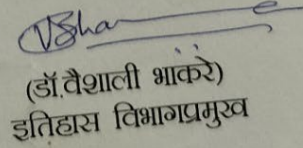 (डॉ.वैशाली भाकरे)
इतिहास विभागप्रमुख